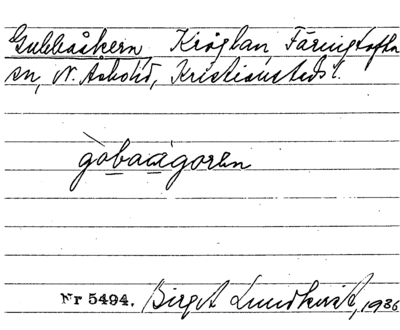 Gubbaåkern, Kröglan, Färingtofta
sn, N. Åsbo hd, Kristianstads l.
gòbaágoren
Nr 5494. Birgit Lundkvist, 1936